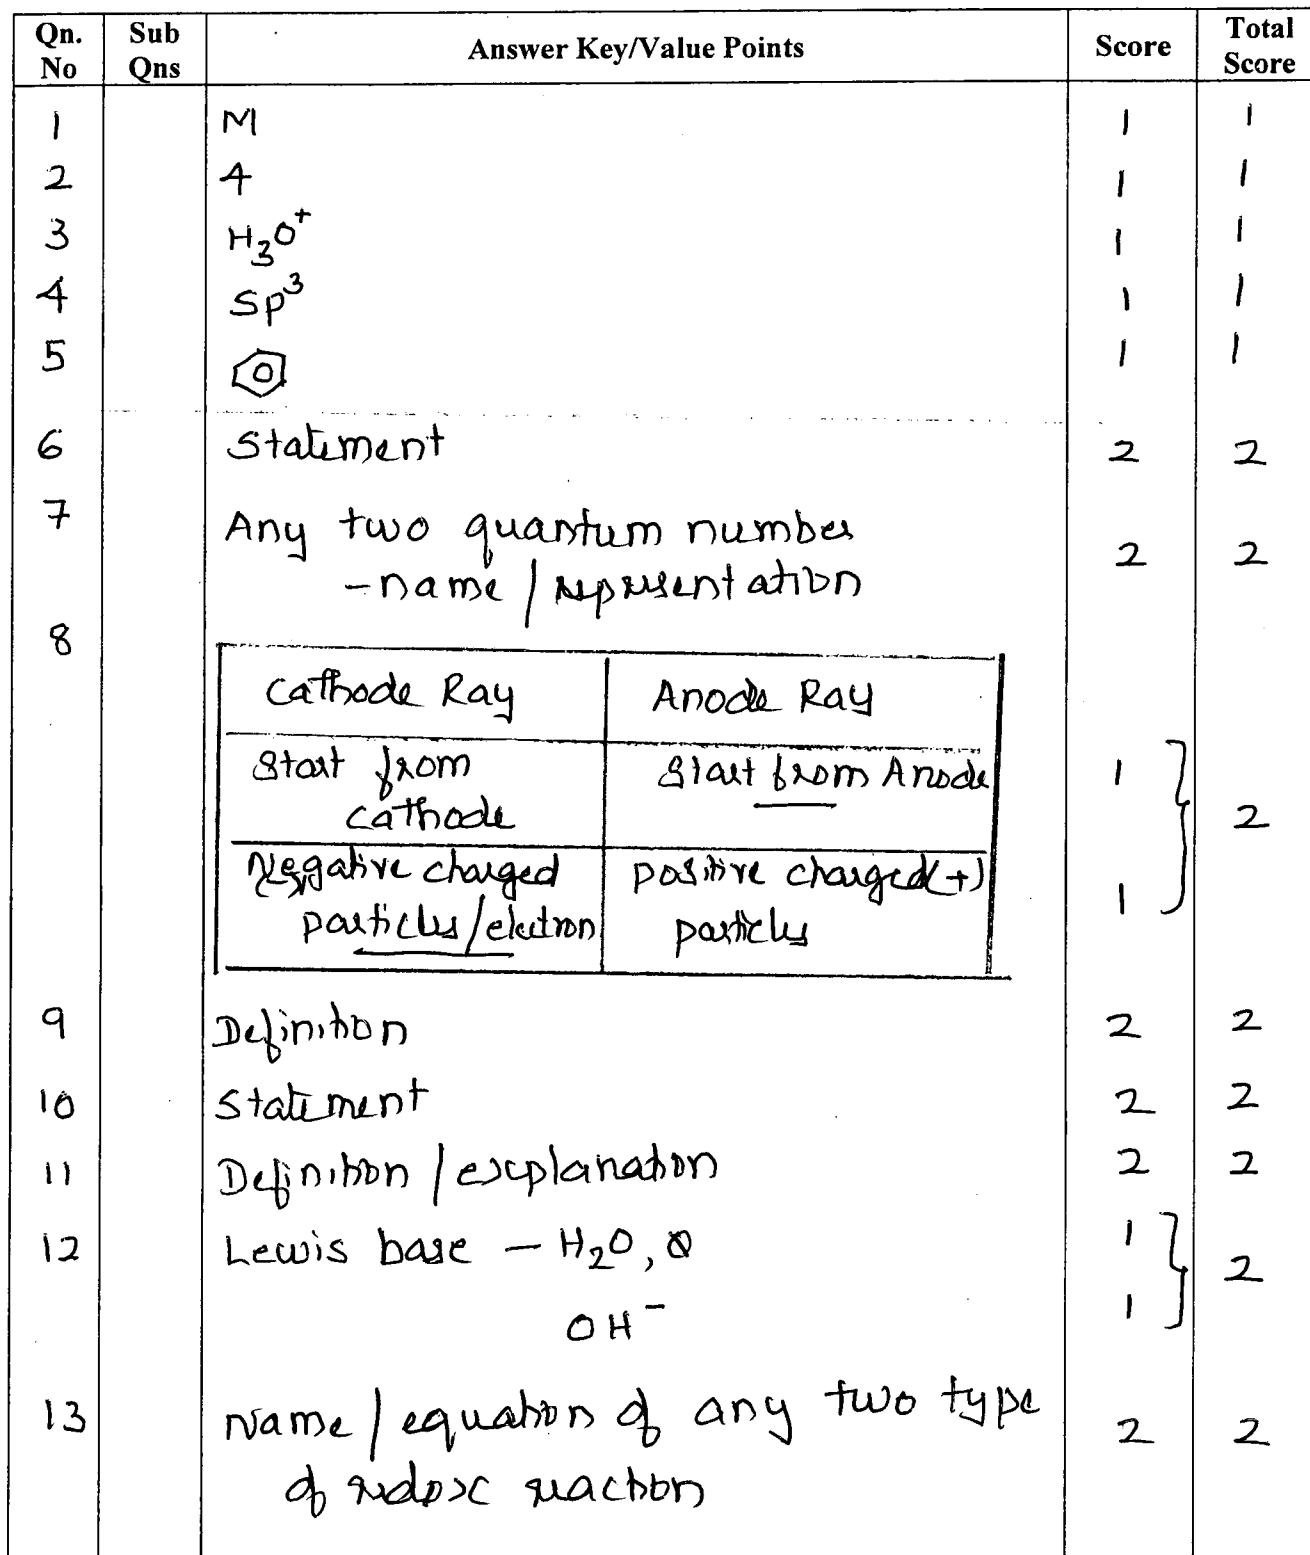 Qn. No | Sub Qns | Answer Key/Value Points | Score | Total Score
1 | M | 1 | 1
2 | 4 | 1 | 1
3 | H₃O⁺ | 1 | 1
4 | Sp³ | 1 | 1
5 | 1 | 1
6 | Statement | 2 | 2
7 | Any two quantum number
-name / representation | 2 | 2
8
Cathode Ray | Anode Ray
Start from | Start from Anode | 1
cathode | 2
Negative charged | positive charged(+) | 1
particles/electron | particles
9 | Definition | 2 | 2
10 | Statement | 2 | 2
11 | Definition / explanation | 2 | 2
12 | Lewis base - H₂O, | 1 | 2
OH⁻ | 1
13 | Name / equation of any two type | 2 | 2
of redox reaction